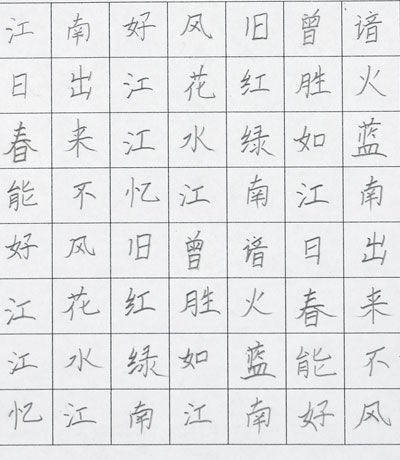 江南好风旧曾谙
日出江花红胜火
春来江水绿如蓝
能不忆江南江南
好风旧曾谙日出
江花红胜火春来
江水绿如蓝能不
忆江南江南好风